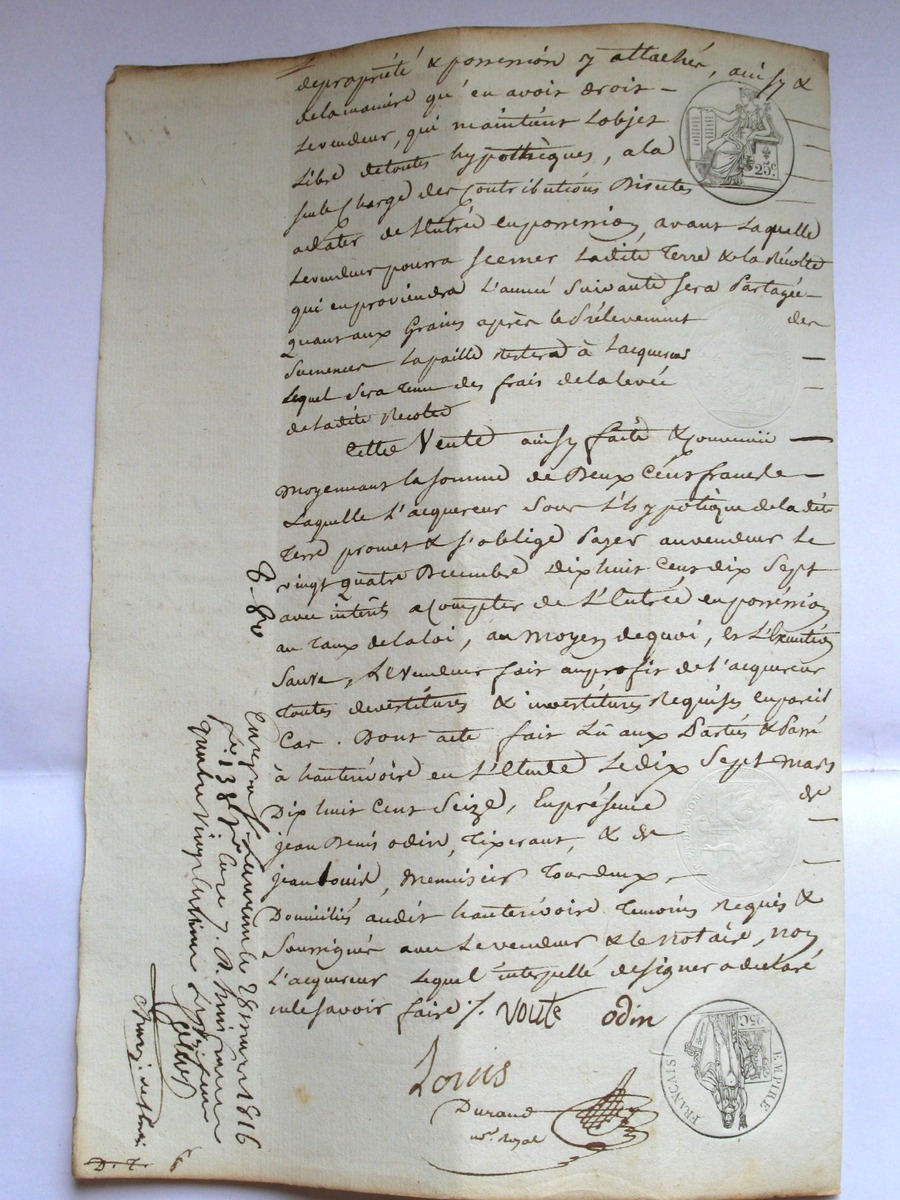 de propriété & possession y attachés, ainsy &
de la maniere qu'en avoit droit —
Le vendeur, qui maintient L'objet
Libre de toutes hypothèques, a la
seule Charge des Contributions Directes
adater de L'Entrée en possession, avant Laquelle
Le vendeur pourra semer Ladite Terre & la Récolte
qui en proviendra L'année Suivante Sera Partagée —
Quant aux Grains après le Prélevement des
Semences La paille Restera à L'acquereur —
Lequel Sera Tenu des frais de la levée
de Ladite Recolte
Cette Vente ainsy faite & Convenue —
moyennant la Somme de Deux Cent francs —
Laquelle L'acquereur Sous L'hypotèque de la dite
Terre promet & s'oblige Payer au vendeur Le
vingt quatre Decembre Dix huit Cent dix Sept
avec intérêts a Compter de L'Entrée en possession
au Taux de la loi, au moyen de quoi, & L'Exécution
Sauve, Le vendeur fait au profit de L'acquereur
toutes devestitures & investitures Requises en pareil
Cas. Dont acte fait Lû aux Parties & Passé
à hauterivoire en L'Etude Le dix Sept mars
Dix huit Cent Seize, En présence de
jean Denis odin, Tixerant, & de —
jean Louis, menuisier Tous deux —
Domiciliés audit hauterivoire Temoins Requis &
Soussignés avec Le vendeur & le notaire, non
L'acquereur Lequel interpellé de signer a déclaré
ne le savoir faire /. voute odin
Louis
Durand
not. royal
25c.
EMPIRE FRANÇAIS
25C
8-80
le 28 mars 1816
D. T. 6